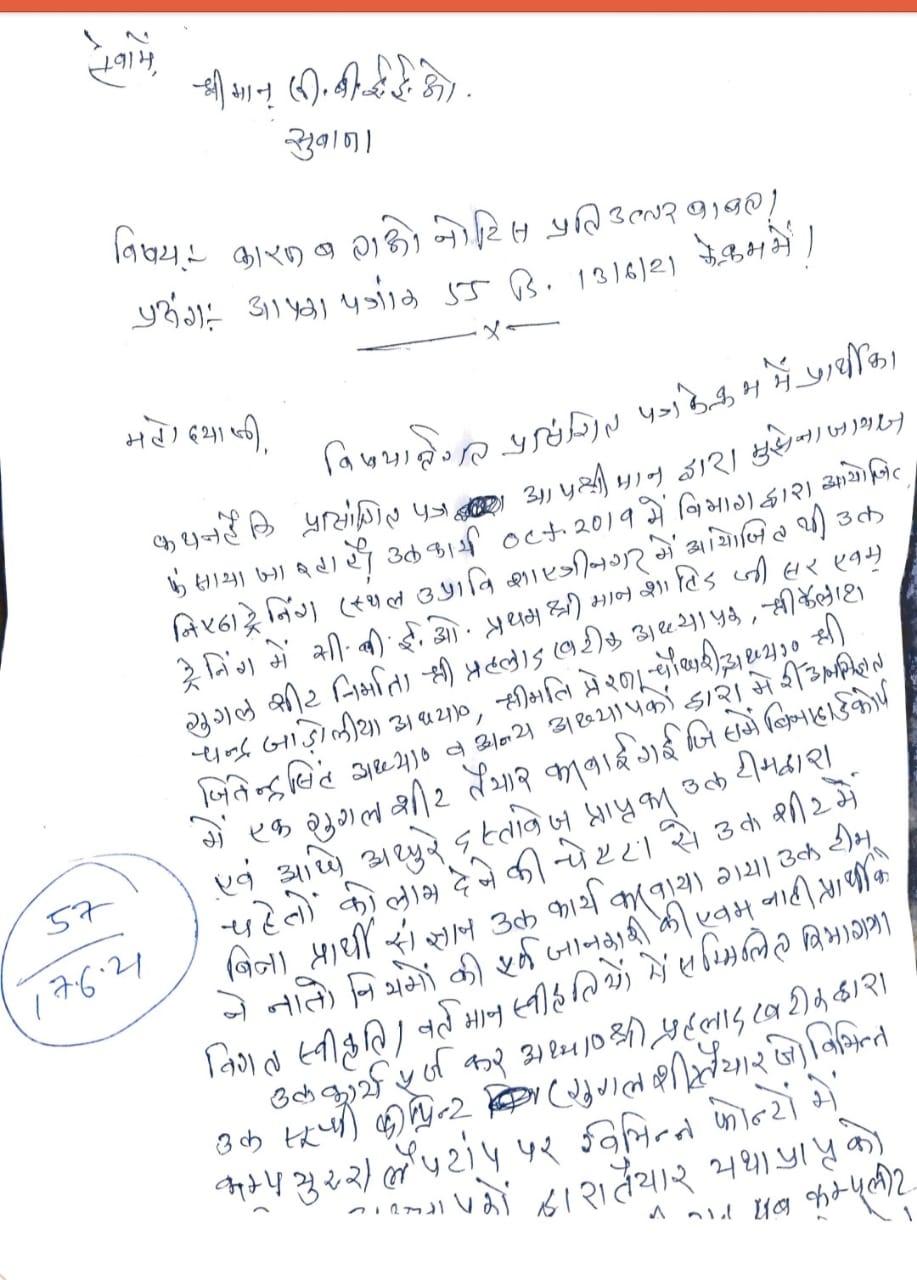 सेवामें,
श्रीमान् सी.बी.ई.ई.ओ.
सुवाणा
विषय:- कारण बताओ नोटिस प्रतिउत्तर बाबत।
प्रसंग:- आपका पत्रांक 55 दि. 13/6/21 के क्रम में।
महोदयजी,
विषयान्तर्गत प्रासंगिक पत्र के क्रम में प्रार्थी का
कथन है कि प्रासंगिक पत्र आप श्रीमान द्वारा मुझे नाजायज
फंसाया जा रहा है। उक्त कार्य Oct 2019 में विभाग द्वारा आयोजित
ट्रेनिंग (स्थल उप्रावि शास्त्रीनगर में आयोजित थी उक्त
ट्रेनिंग में सी.बी.ई.ओ. प्रथम श्रीमान जी सर एवम्
गुगल शीट निर्माता श्री प्रहलाद खटीक अध्यापक, श्री कैलाश
चन्द्र जाड़ोलीया अध्या०, श्रीमति प्रेरणा चौधरी अध्या० श्री
जितेन्द्र सिंह अध्या० व अन्य अध्यापकों द्वारा मेरी उपस्थिति
में एक गुगल शीट तैयार करवाई गई जिसमें बिना हार्डकॉपी
एवं आधे अधुरे दस्तावेज प्राप्त कर उक्त टीम द्वारा
चहेतों को लाभ देने की चेष्टा से उक्त शीट में
बिना प्रार्थी उक्त कार्य करवाया गया उक्त टीम
ने नातो नियमों की पूर्व जानकारी की एवम नाही प्रार्थी के
विगत स्वीकृति/ वर्तमान स्वीकृतियों में सम्मिलित
उक्त कार्य पूर्ण कर अध्या० श्री प्रहलाद खटीक द्वारा
उक्त की प्रिन्ट (गुगल शीट तैयार जो विभिन्न
कम्प्युटर/ लैपटॉप पर विभिन्न फोन्टों में
द्वारा तैयार यथा प्राप्त को
57
17.6.21